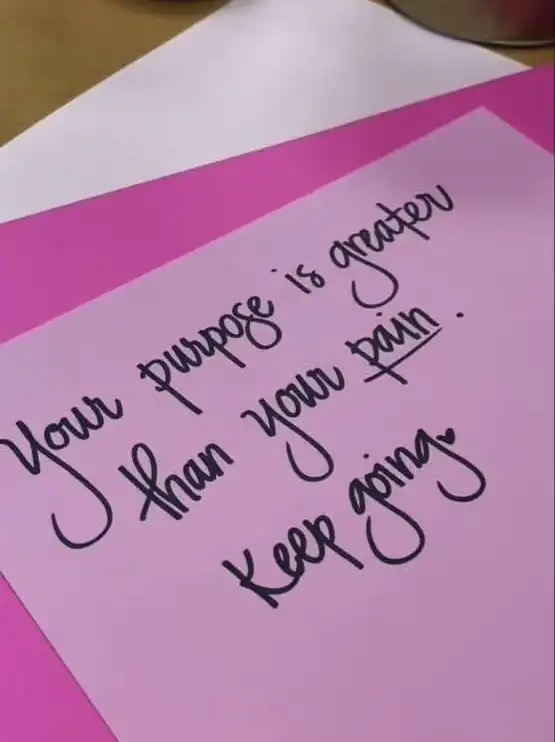 Your purpose is greater
than your pain.
Keep going.